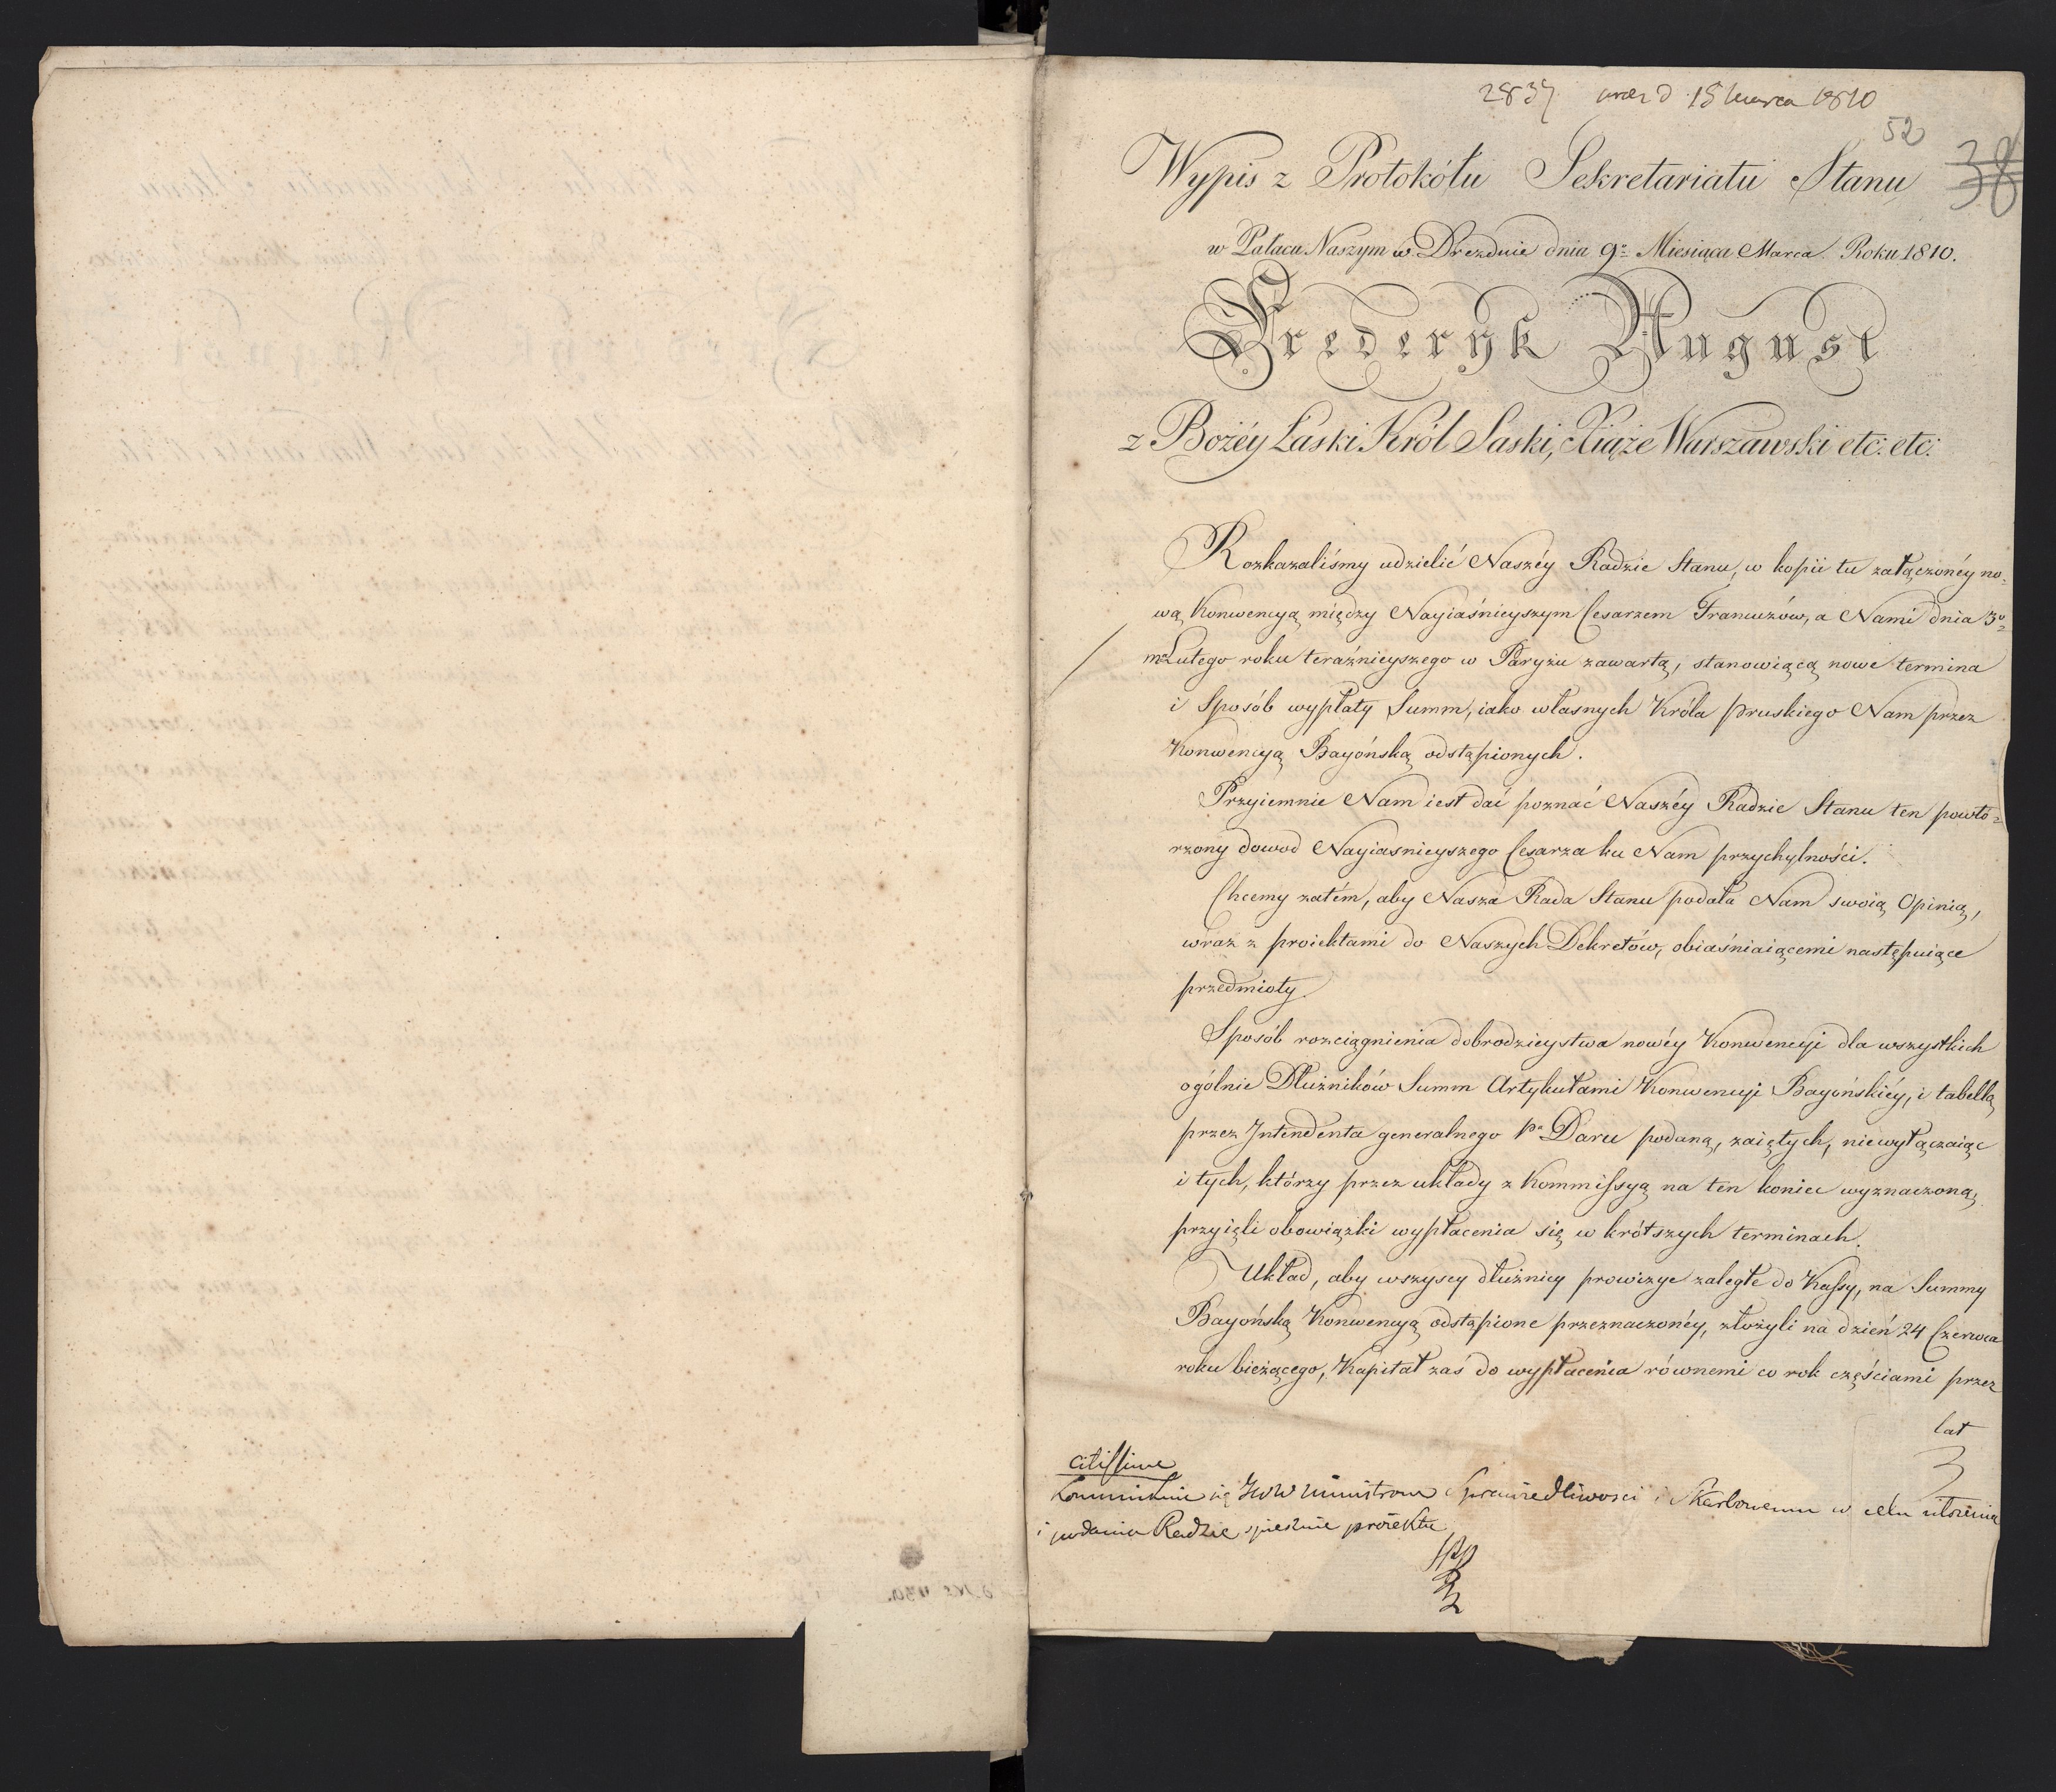 2837 15 Marca 1810
52
38
Wypis z Protokółu Sekretariatu Stanu
w Pałacu Naszym w Dreznie dnia 9º Miesiąca Marca Roku 1810.
Frederyk August
z Bożéy Łaski Król Saski, Xiąże Warszawski etc: etc:
Rozkazaliśmy udzielić Naszéy Radzie Stanu, w kopii tu załączonéy no=
wą Konwencyą między Nayiaśnieyszym Cesarzem Francuzów, a Nami dnia 3º
Lutego roku teraźnieyszego w Paryżu zawartą, stanowiącą nowe termina
i Sposób wypłaty Summ, iako własnych Króla pruskiego Nam przez
Konwencyą Bayońską odstąpionych.
Przyiemnie Nam iest dać poznać Naszéy Radzie Stanu ten powtó=
rzony dowod Nayiasnieyszego Cesarza ku Nam przychylności.
Chcemy zatém, aby Nasza Rada Stanu podała Nam swoią Opinią,
wraz z proiektami do Naszych Dekretów, obiaśniaiącemi następuiące
przedmioty.
Sposób rozciągnienia dobrodzieystwa nowéy Konwencyi dla wszystkich
ogólnie Dłużników Summ Artykułami Konwencyi Bayońskiéy, i tabellą
przez Intendenta generalnego Pª Daru podaną, zaiętych, niewyłączaiąc
i tych, którzy przez układy z Kommissyą na ten koniec wyznaczoną,
przyięli obowiązki wypłacenia się w krótszych terminach.
Układ, aby wszyscy dłużnicy prowizye zaległe do Kassy, na Summy
Bayońską Konwencyą odstąpione przeznaczonéy, złożyli na dzień 24 Czerwca
roku bieżącego, Kapitał zaś do wypłacenia równemi co rok częściami przez
lat
citissime
kommunikuie się JWW Ministrom Sprawiedliwosci i Skarbowemu w celu
i podania Radzie spiesznie proiektu